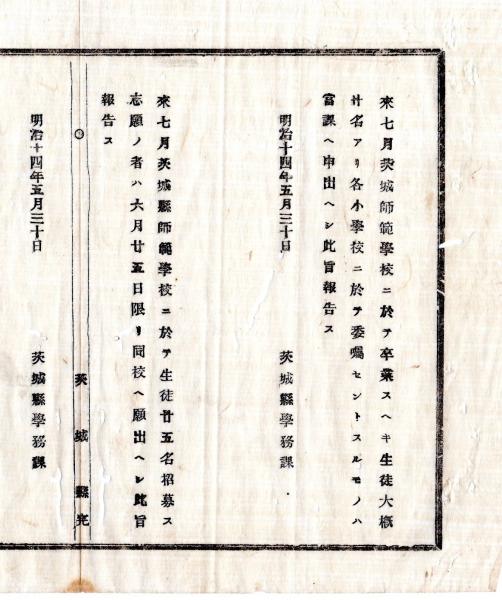 來七月茨城師範學校ニ於テ卒業スヘキ生徒大槪
廿名アリ各小學校ニ於テ委囑セントスルモノハ
當課ヘ申出ヘシ此旨報告ス
明治十四年五月三十日
茨城縣學務課
來七月茨城縣師範學校ニ於テ生徒廿五名招募ス
志願ノ者ハ六月廿五日限リ同校ヘ願出ヘシ此旨
報告ス
茨城縣
明治十四年五月三十日
茨城縣學務課